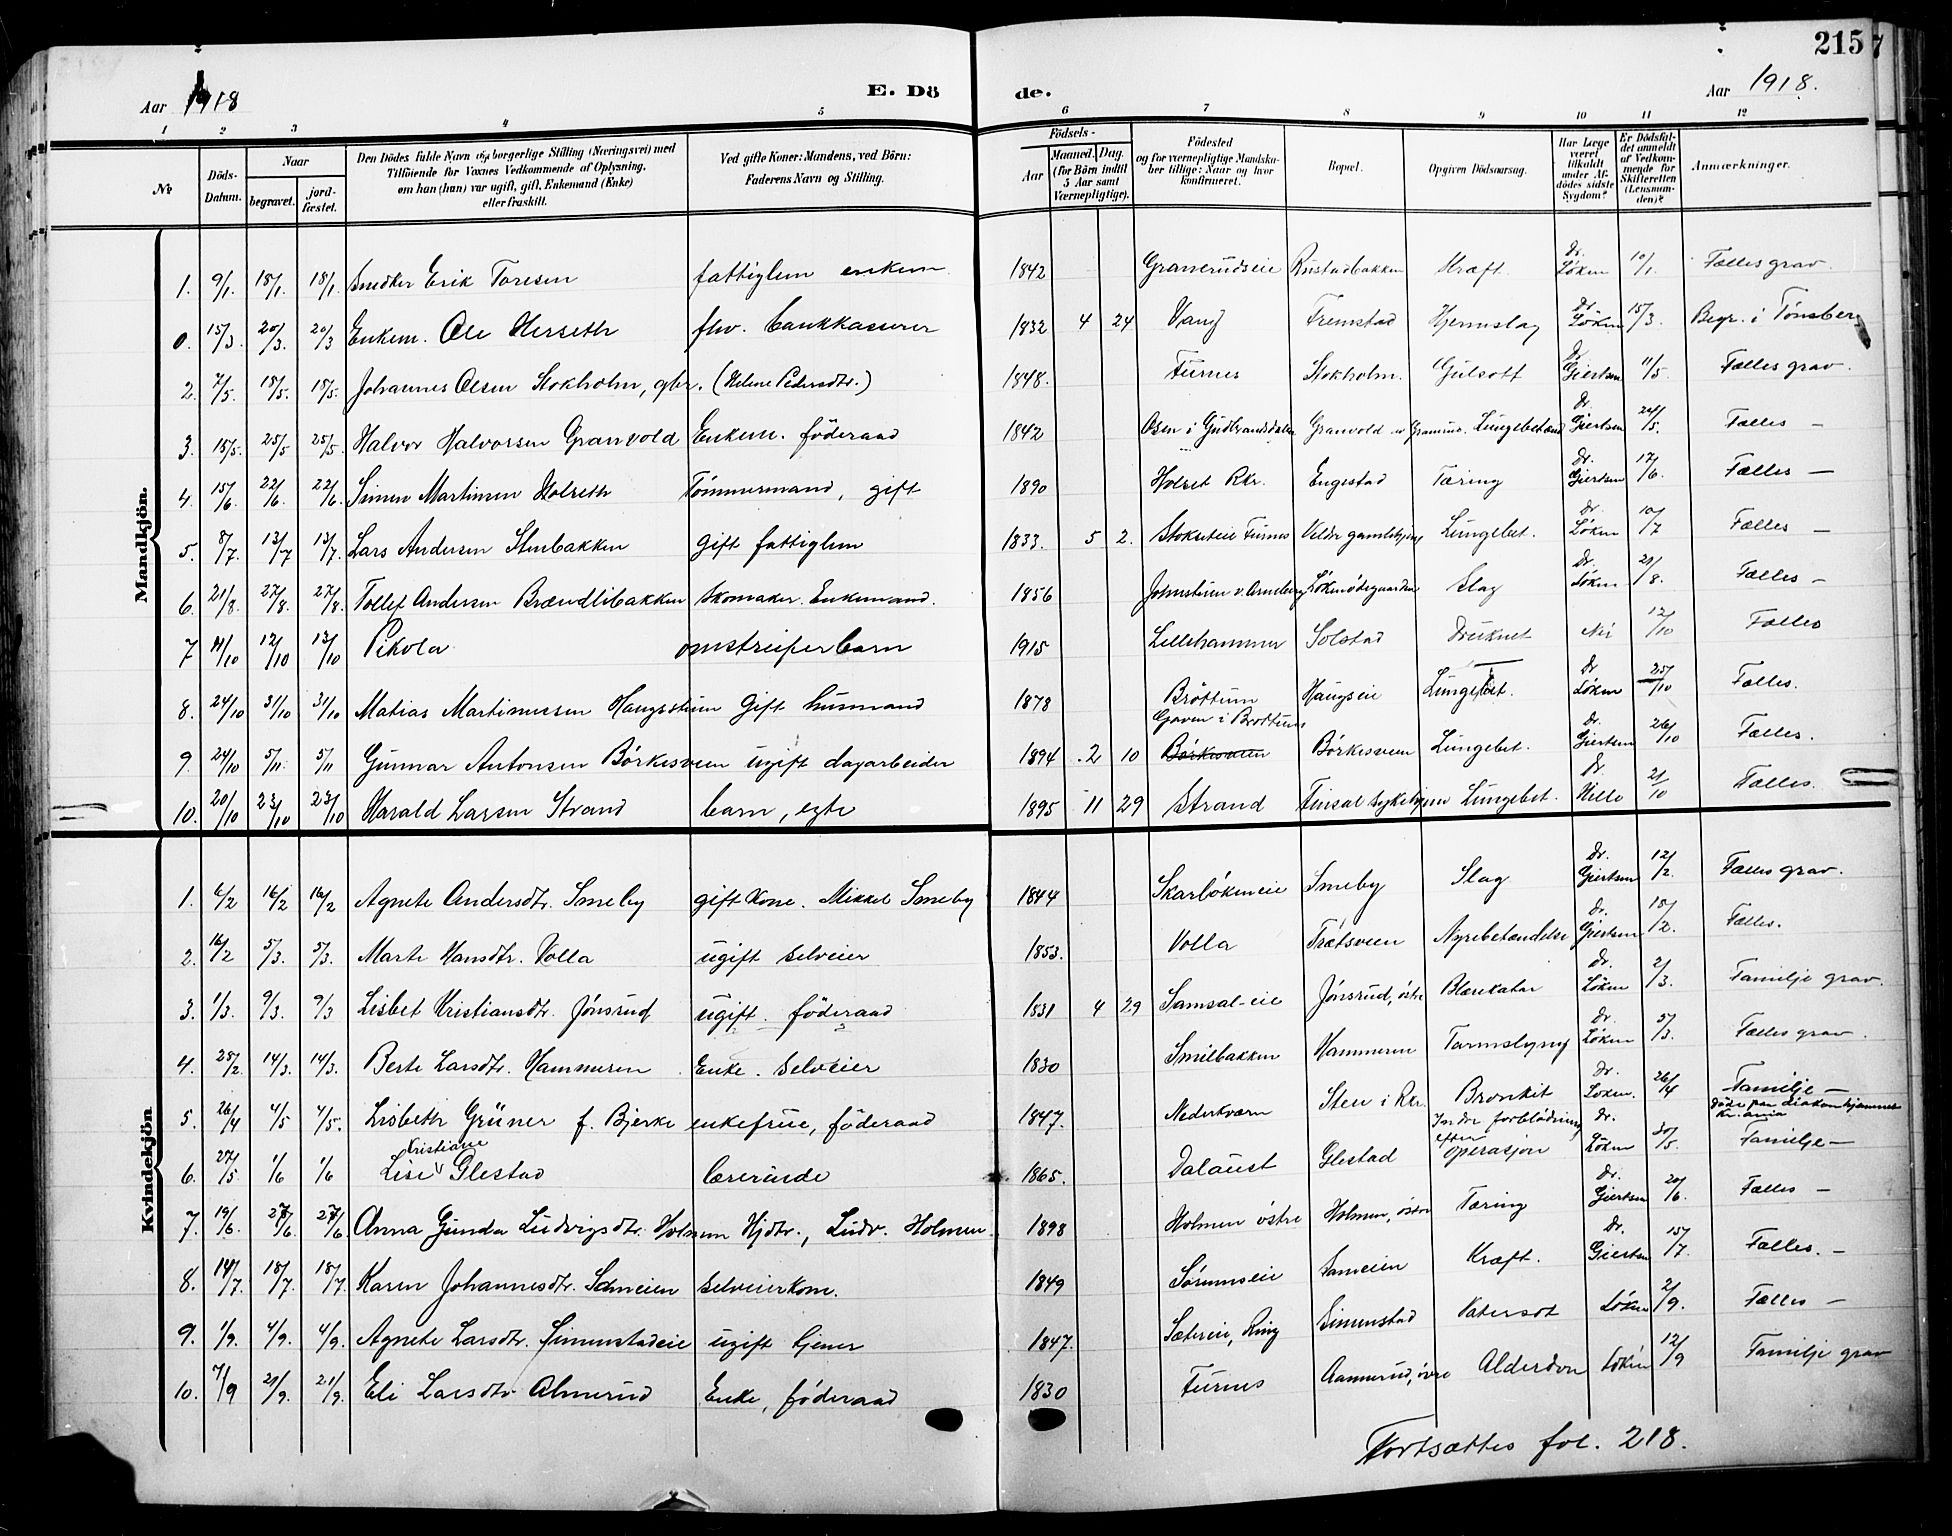 215
Aar 1918
E. Döde.
Aar 1918.
1 2 3 4 5 6 7 8 9 10 11 12
No
Döds-Datum.
Naar begravet. jordfæstet.
Den Dödes fulde Navn og borgerlige Stilling (Næringsvei) med Tilföiende for Voxnes Vedkommende af Oplysning, om han (hun) var ugift, gift, Enkemand (Enke) eller fraskilt.
Ved gifte Koner: Mandens, ved Börn: Faderens Navn og Stilling.
Födsels- Aar Maaned. Dag. (for Börn indtil 5 Aar samt Værnepligtige).
Födested og for værnepligtige Mandskaber tillige: Naar og hvor konfirmeret.
Bopæl.
Opgiven Dödsaarsag.
Har Læge været tilkaldt under Afdödes sidste Sygdom?
Er Dödsfaldet anmeldt af Vedkommende for Skifteretten (Lensmanden)?
Anmærkninger.
Mandkjön.
1. 9/1. 18/1. 18/1. Snedker Erik Toresen fattiglem enkem. 1842 Granerudseie Rustadbakken Kræft. Dr. Løken 10/1. Fælles grav.
0. 15/3. 20/3. 20/3 Enkem. Ole Herseth fhv. bankkasserer 1832 4 24 Vang Fremstad Hjernslag Dr. Løken 15/3. Begr. i Tønsberg
2. 7/5. 18/5. 18/5. Johannes Olsen Stokholm, gbr. (Helene Pedersdtr.) 1848. Furnes Stokholm. Gulsott Dr. Giertsen 11/5. Fælles grav.
3. 15/5. 25/5 25/5. Halvor Halvorsen Granvold Enkem. föderaad 1842 Osen i Gudbrandsdalen Granvold Lungebetænd Dr. Giertsen 24/5. Fælles —
4. 15/6 22/6. 22/6. Simen Martinsen Holseth Tömmermand, gift 1890 Holset Rkr. Engestad Tæring Dr. Giertsen 17/6. Fælles —
5. 8/7. 13/7 13/7. Lars Andersen Stenbakken gift fattiglem 1833. 5 2. Stokseteie Furnes Veldre gamlehjem Lungebet. Dr. Løken 10/7 Fælles —
6. 21/8. 27/8. 27/8. Tollef Andersen Brændlibakken skomaker. Enkemand. 1856 Johnstuen v. Arneberg Lökenödegaarden Slag Dr. Løken 21/8. Fælles —
7 11/10 12/10 12/10 Pikola omstreiferbarn 1915 Lillehammer Solstad Druknet Nei 12/10 Fælles
8. 24/10 31/10 31/10 Matias Martinussen Haugsstuen Gift husmand 1878 Bröttum Haugseie Lungebet. Dr Løken 25/10 Fælles.
9. 24/10 5/11. 5/11 Gunnar Antonsen Börkesveen ugift dagarbeider 1894 2 10 Gaven i Brøttum Börkesveen Börkesveen Lungebet. Dr. Giertsen 26/10 Fælles.
10. 20/10 23/10 23/10 Harald Larsen Strand barn, egte 1895 11 29 Strand Finsal sykehjem Lungebet. Dr. Hille 21/10 Fælles.
Kvindekjön
1. 6/2 16/2 16/2 Agnete Andersdtr. Smeby gift Kone. Mikkel Smeby 1844 Skarlökeneie Smeby Slag Dr. Giertsen 12/2. Fælles grav.
2. 16/2 5/3. 5/3. Marte Hansdtr. Volla ugift selveier 1853. Volla Trætsveen Nyrebetændelse Dr. Giertsen 18/2. Fælles.
3. 1/3. 9/3. 9/3 Lisbet Kristiansdtr. Jönsrud ugift. föderaad 1831 4 29 Samsal-eie Jönsrud, östre Blærekatar Dr. Løken 2/3. Familje grav.
4. 28/2. 14/3. 14/3. Berte Larsdtr. Hammeren Enke. selveier 1830 Smilbakken Hammeren Tarmslyng Dr. Løken 5/3. Fælles grav.
5. 26/4 4/5 4/5. Lisbeth Grüner f. Bjerke enkefrue, föderaad 1847. Nederkværn Sten i Rkr. Bronkit Dr. Løken. 26/4 Familje —
6. 27/5 1/6 1/6 Lise Kristiane Glestad lærerinde 1865. Dalaust Glestad Indre forblödning efter operasjon Dr. Löken 30/5. döde paa diakonhjemmet Kr.ania Familje —
7. 19/6. 27/6. 27/6. Anna Gunda Ludvigsdtr. Holmen Hjdtr., Ludv. Holmen 1898 Holmen östre Holmen, östre Tæring Dr. Giertsen 20/6. Fælles —
8. 14/7. 18/7. 18/7 Karen Johannesdtr. Sameien selveierkone. 1849 Sörumseie Sameien Kræft. Dr. Giertsen 15/7. Fælles. —
9. 1/9. 4/9. 4/9. Agnete Larsdtr. Simenstadeie ugift tjener 1847. Sætereie, Ring Simenstad Vatersot Løken 2/9. Fælles —
10. 7/9 21/9. 21/9. Eli Larsdtr Almerud Enke, föderaad 1830 Furnes Aamerud, övre Alderdom Løken 12/9 Familje grav
Fortsættes fol. 218.